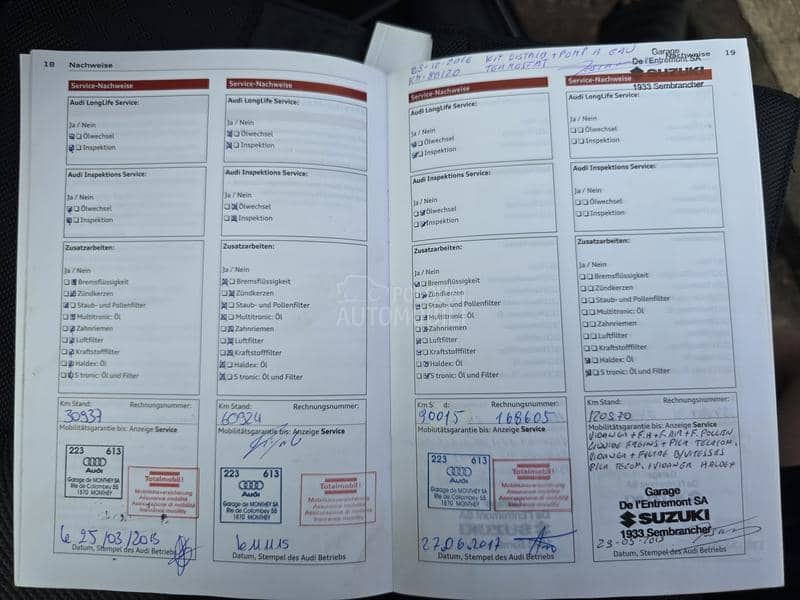 18 Nachweise
Service-Nachweise
Audi LongLife Service:
Ja / Nein
Ölwechsel
Inspektion
Audi Inspektions Service:
Ja / Nein
Ölwechsel
Inspektion
Zusatzarbeiten:
Ja / Nein
Bremsflüssigkeit
Zündkerzen
Staub- und Pollenfilter
Multitronic: Öl
Zahnriemen
Luftfilter
Kraftstofffilter
Haldex: Öl
S tronic: Öl und Filter
Km Stand: Rechnungsnummer:
30937
Mobilitätsgarantie bis: Anzeige Service
223 613
Audi
Garage de MONTHEY SA
Rte de Collombey 55
1870 MONTHEY
Totalmobil!
Mobilitätsversicherung
Assurance mobilité
Assicurazione di mobilità
Insurance mobility
le 25/03/2013
Datum, Stempel des Audi Betriebs
Service-Nachweise
Audi LongLife Service:
Ja / Nein
Ölwechsel
Inspektion
Audi Inspektions Service:
Ja / Nein
Ölwechsel
Inspektion
Zusatzarbeiten:
Ja / Nein
Bremsflüssigkeit
Zündkerzen
Staub- und Pollenfilter
Multitronic: Öl
Zahnriemen
Luftfilter
Kraftstofffilter
Haldex: Öl
S tronic: Öl und Filter
Km Stand: Rechnungsnummer:
60924
Mobilitätsgarantie bis: Anzeige Service
223 613
Audi
Garage de MONTHEY SA
Rte de Collombey 55
1870 MONTHEY
Totalmobil!
Mobilitätsversicherung
Assurance mobilité
Assicurazione di mobilità
Insurance mobility
Datum, Stempel des Audi Betriebs
Nachweise 19
23-12-2016 KIT DISTRIB + POMP A EAU
KM-88120 TERMOSTAT
Garage
De l'Entremont SA
SUZUKI
1933 Sembrancher
Service-Nachweise
Audi LongLife Service:
Ja / Nein
Ölwechsel
Inspektion
Audi Inspektions Service:
Ja / Nein
Ölwechsel
Inspektion
Zusatzarbeiten:
Ja / Nein
Bremsflüssigkeit
Zündkerzen
Staub- und Pollenfilter
Multitronic: Öl
Zahnriemen
Luftfilter
Kraftstofffilter
Haldex: Öl
S tronic: Öl und Filter
Km S d: Rechnungsnummer:
90015 168605
Mobilitätsgarantie bis: Anzeige Service
223 613
Audi
Garage de MONTHEY SA
Rte de Collombey 55
1870 MONTHEY
Totalmobil!
Mobilitätsversicherung
Assurance mobilité
Assicurazione di mobilità
Insurance mobility
27.06.2017
Datum, Stempel des Audi Betriebs
Service-Nachweise
Audi LongLife Service:
Ja / Nein
Ölwechsel
Inspektion
Audi Inspektions Service:
Ja / Nein
Ölwechsel
Inspektion
Zusatzarbeiten:
Ja / Nein
Bremsflüssigkeit
Zündkerzen
Staub- und Pollenfilter
Multitronic: Öl
Zahnriemen
Luftfilter
Kraftstofffilter
Haldex: Öl
S tronic: Öl und Filter
Km Stand: Rechnungsnummer:
Mobilitätsgarantie bis: Anzeige Service
VIDANGE + F.H + F.AIR + F. POLLEN
LIQUIDE FREINS + PILE TELECOM.
VIDANGE + FILTRE B/VITESSES
VIDANGE HALDEX
Garage
De l'Entremont SA
SUZUKI
1933 Sembrancher
Datum, Stempel des Audi Betriebs